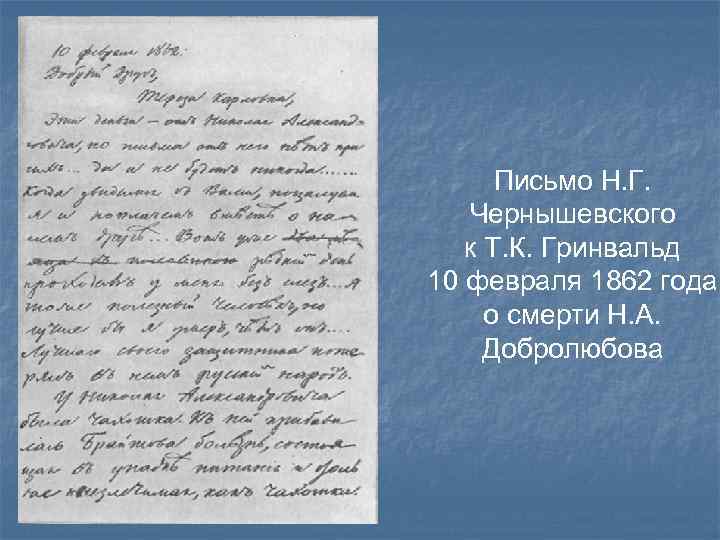 10 февраля 1862.
Добрый Другъ,
Тереза Карловна,
Эти деньги — отъ Николая Александ-
ровича, но письма отъ него нѣтъ при
нихъ... да и не будетъ никогда......
Когда увидимся съ Вами, поцалуемся
и поплачемъ вмѣстѣ о на-
шемъ другѣ... Вотъ уже два мѣ-
сяца съ половиною рѣдкій день
проходитъ у меня безъ слезъ... Я
тоже полезный человѣкъ, но
лучше бы я умеръ, чѣмъ онъ....
Лучшаго своего защитника поте-
рялъ въ немъ русскій народъ.
У Николая Александровича
была чахотка. Къ ней прибави-
лась Брайтова болѣзнь, состоя-
щая въ упадкѣ питанія и
неизлечимая, какъ чахотка.
Письмо Н.Г.
Чернышевского
к Т.К. Гринвальд
10 февраля 1862 года
о смерти Н.А.
Добролюбова